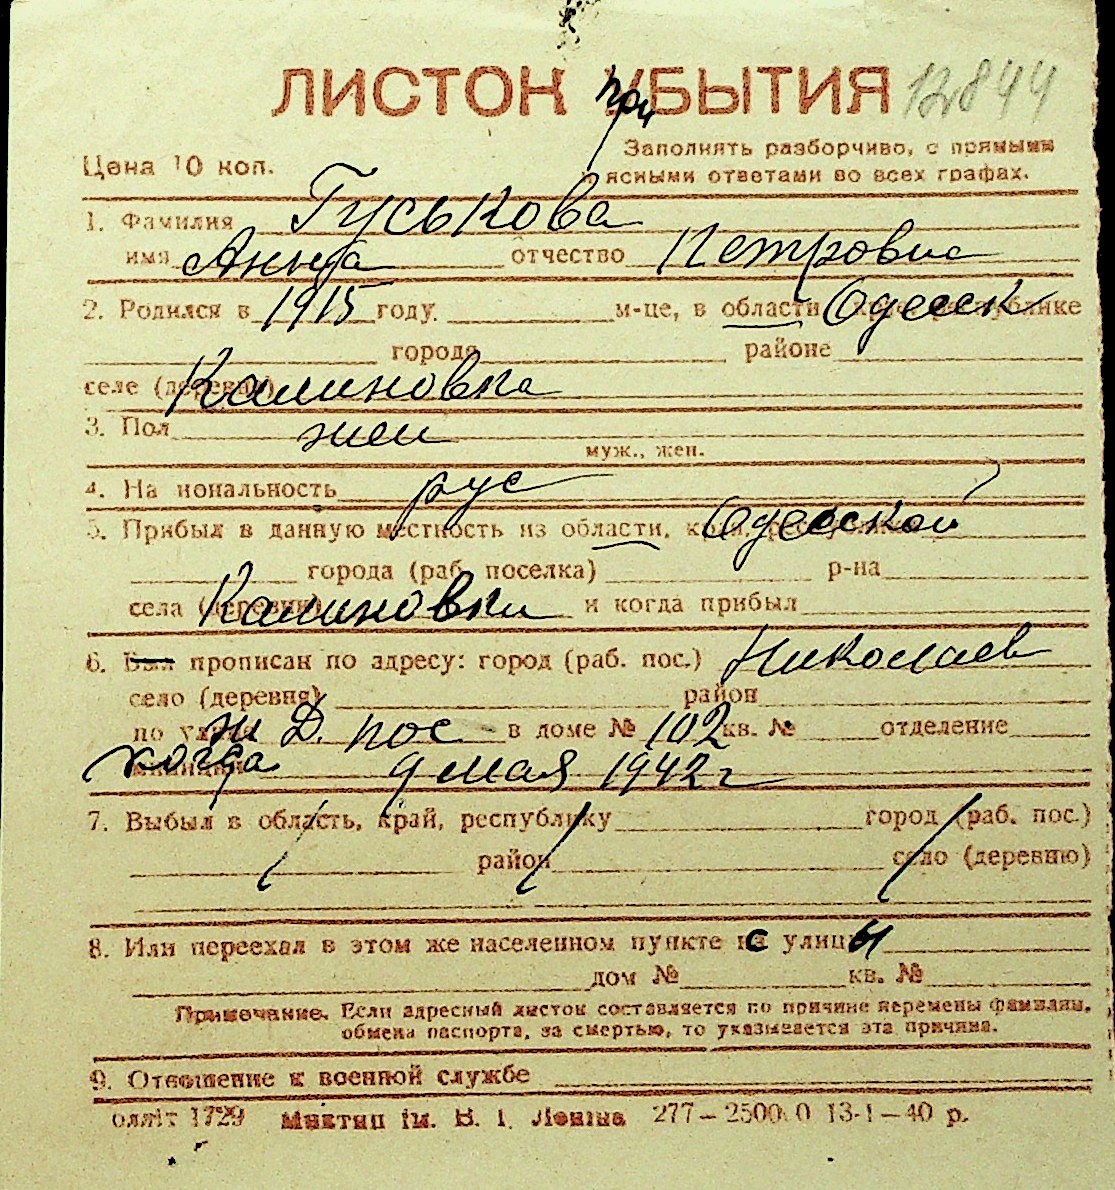 ЛИСТОК УБЫТИЯ 12844
при
Цена 10 коп.
Заполнять разборчиво, с прямыми
и ясными ответами во всех графах.
1. Фамилия Гуськова
имя Анна отчество Петровна
2. Родился в 1915 году м-це, в области Одесск республике
города районе
селе (деревни) Калиновка
3. Пол жен
муж., жен.
4. На иональность рус
5. Прибыл в данную местность из области, края, Одесской
города (раб. поселка) р-на
села (деревни) Калиновки и когда прибыл
6. Был прописан по адресу: город (раб. пос.) Николаев
село (деревня) район
по улице ж Д. пос в доме № 102 кв. № отделение
милиции когда 9 мая 1942 г
7. Выбыл в область, край, республику город (раб. пос.)
район село (деревню)
8. Или переехал в этом же населенном пункте с улицы
дом № кв. №
Примечание. Если адресный листок составляется по причине перемены фамилии,
обмена паспорта, за смертью, то указывается эта причина.
9. Отношение к военной службе
1729 Миктип ім. В. І. Леніна 277—2500.0 13-I—40 р.